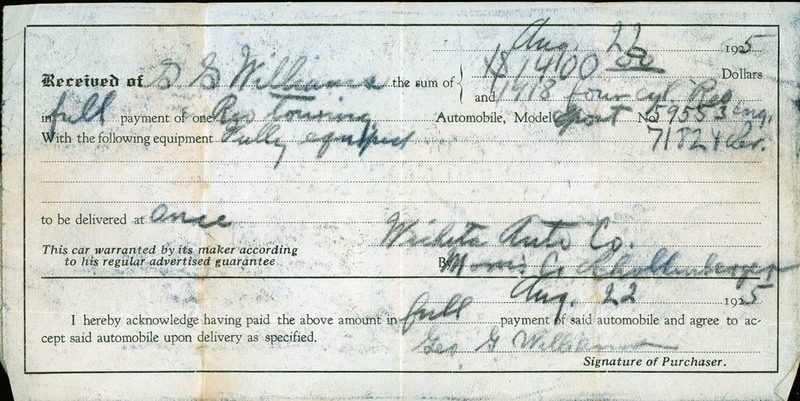 Aug. 22 1925
Received of G G Williams the sum of $1400 00 Dollars
and 1918 four cyl Reo
in full payment of one Reo Touring Automobile, Model Sport No 59553 eng.
With the following equipment Fully equiped 71824 Ser.
to be delivered at once
Wichita Auto Co.
This car warranted by its maker according
to his regular advertised guarantee
By Morris C. Shollenberger
Aug. 22 1925
I hereby acknowledge having paid the above amount in full payment of said automobile and agree to ac-
cept said automobile upon delivery as specified.
Geo G Williams
Signature of Purchaser.